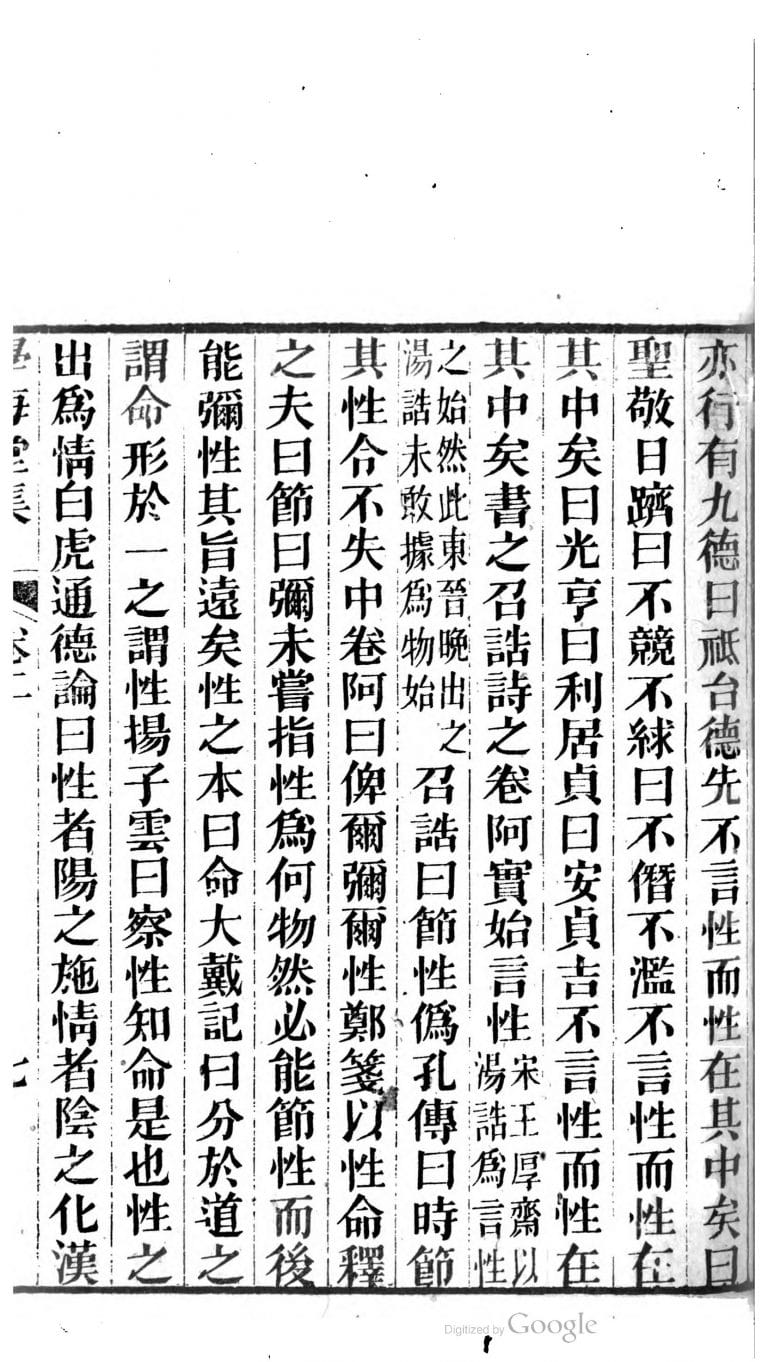 亦行有九德曰祗台德先不言性而性在其中矣曰
聖敬日躋曰不競不絿曰不僭不濫不言性而性在
其中矣曰光亨曰利居貞曰安貞吉不言性而性在
其中矣書之召誥詩之卷阿實始言性宋王厚齋以湯誥為言性
之始然此東晉晚出之湯誥未敢據為物始召誥曰節性僞孔傳曰時節
其性令不失中卷阿曰俾爾彌爾性鄭箋以性命釋
之夫曰節曰彌未嘗指性爲何物然必能節性而後
能彌性其旨遠矣性之本曰命大戴記曰分於道之
謂命形於一之謂性揚子雲曰察性知命是也性之
出爲情白虎通德論曰性者陽之施情者陰之化漢
學海堂集 卷二 七
Digitized by Google